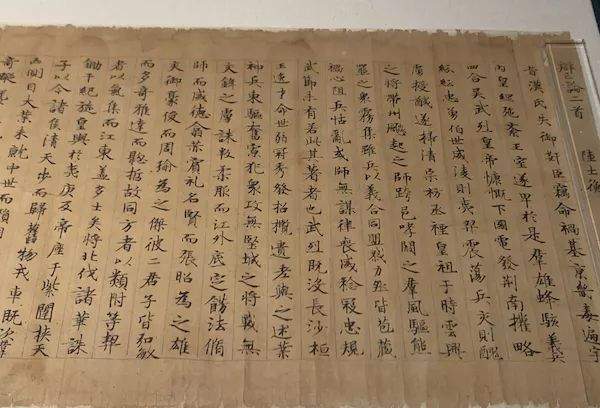 辯亡論二首　陸士衡
昔漢氏失御奸臣竊命禍基京畿毒遍宇
內皇綱弛紊王室遂卑於是羣雄蜂駭義兵
四合吳武烈皇帝慷慨下國電發荊南權略
紛紜忠勇伯世威稜則夷羿震蕩兵交則醜
虜授馘遂掃清宗祊烝禋皇祖于時雲興
之將帶州飇起之師跨邑哮闞之羣風驅熊
羆之衆霧集雖兵以義合同盟戮力然皆苞藏
禍心阻兵怙亂或師無謀律喪威稔寇忠規
武節未有若此其著者也武烈既沒長沙桓
王逸才命世弱冠秀發招攬遺老與之述業
神兵東驅奮寡犯衆攻無堅城之將戰無
交鋒之虜誅叛柔服而江外底定飭法脩
師而威德翕赫賓禮名賢而張昭為之雄
交御豪俊而周瑜為之傑彼二君子皆弘敏
而多奇雅達而聰哲故同方者以類附等契
者以氣集而江東蓋多士矣將北伐諸華誅
鋤干紀旋皇輿於夷庚反帝座于紫闥挾天
子以令諸侯清天步而歸舊物戎車既次羣
凶側目大業未就中世而殞